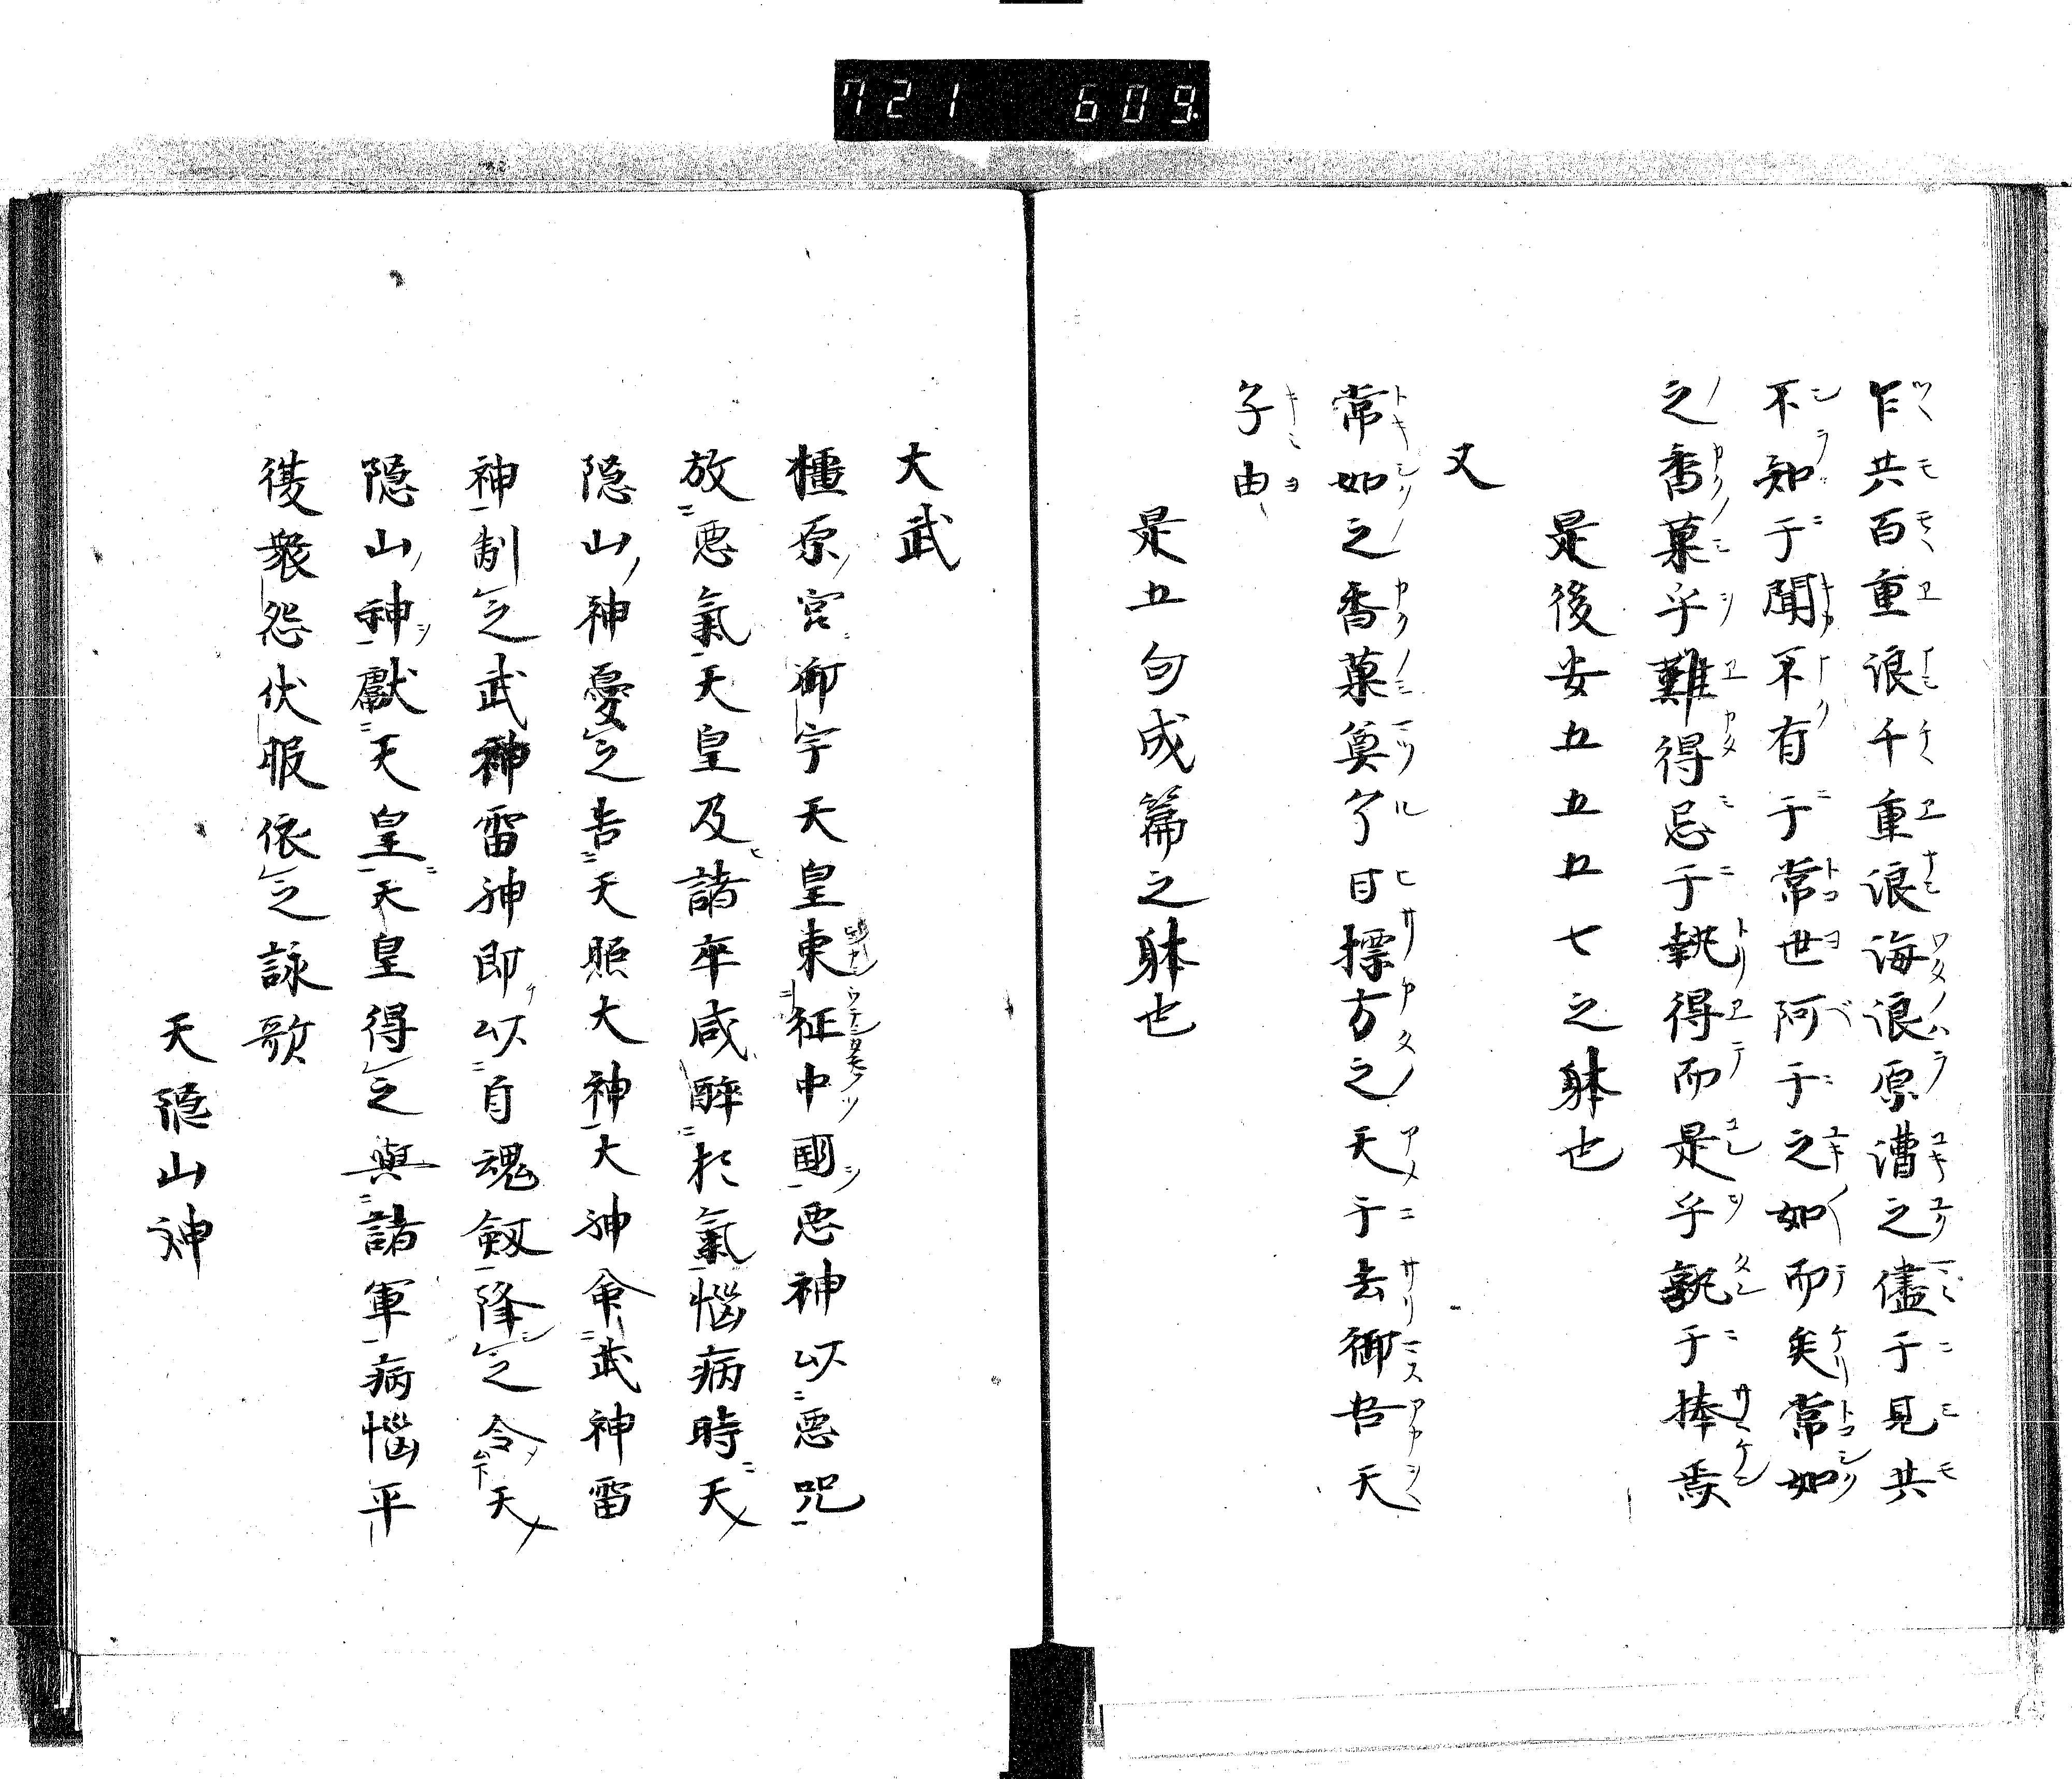 721 609
乍共百重浪千重浪海浪原漕之儘于見共
不知于聞不有于常世阿于之如而矣常如
之香菓乎難得忌于執得而是乎孰于捧焉
是後安五五五七之躰也
又
常如之香菓奠尓日標方之天于去御吾天
子由
是五句成篇之躰也
大武
橿原宮御宇天皇東征中國悪神以悪咒
放悪氣天皇及諸卒咸醉於氣惱病時天
隠山神憂之告天照大神大神命武神雷
神制之武神雷神即以自魂劔降之令天
隠山神獻天皇天皇得之與諸軍病惱平
復衆怨伏服依之詠歌
天隠山神